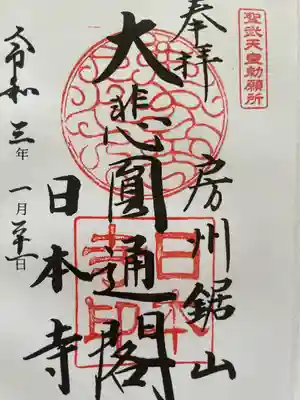 聖武天皇勅願所
奉拝
房州鋸山
大悲圓通閣
日本寺
令和三年一月三日
日本寺印